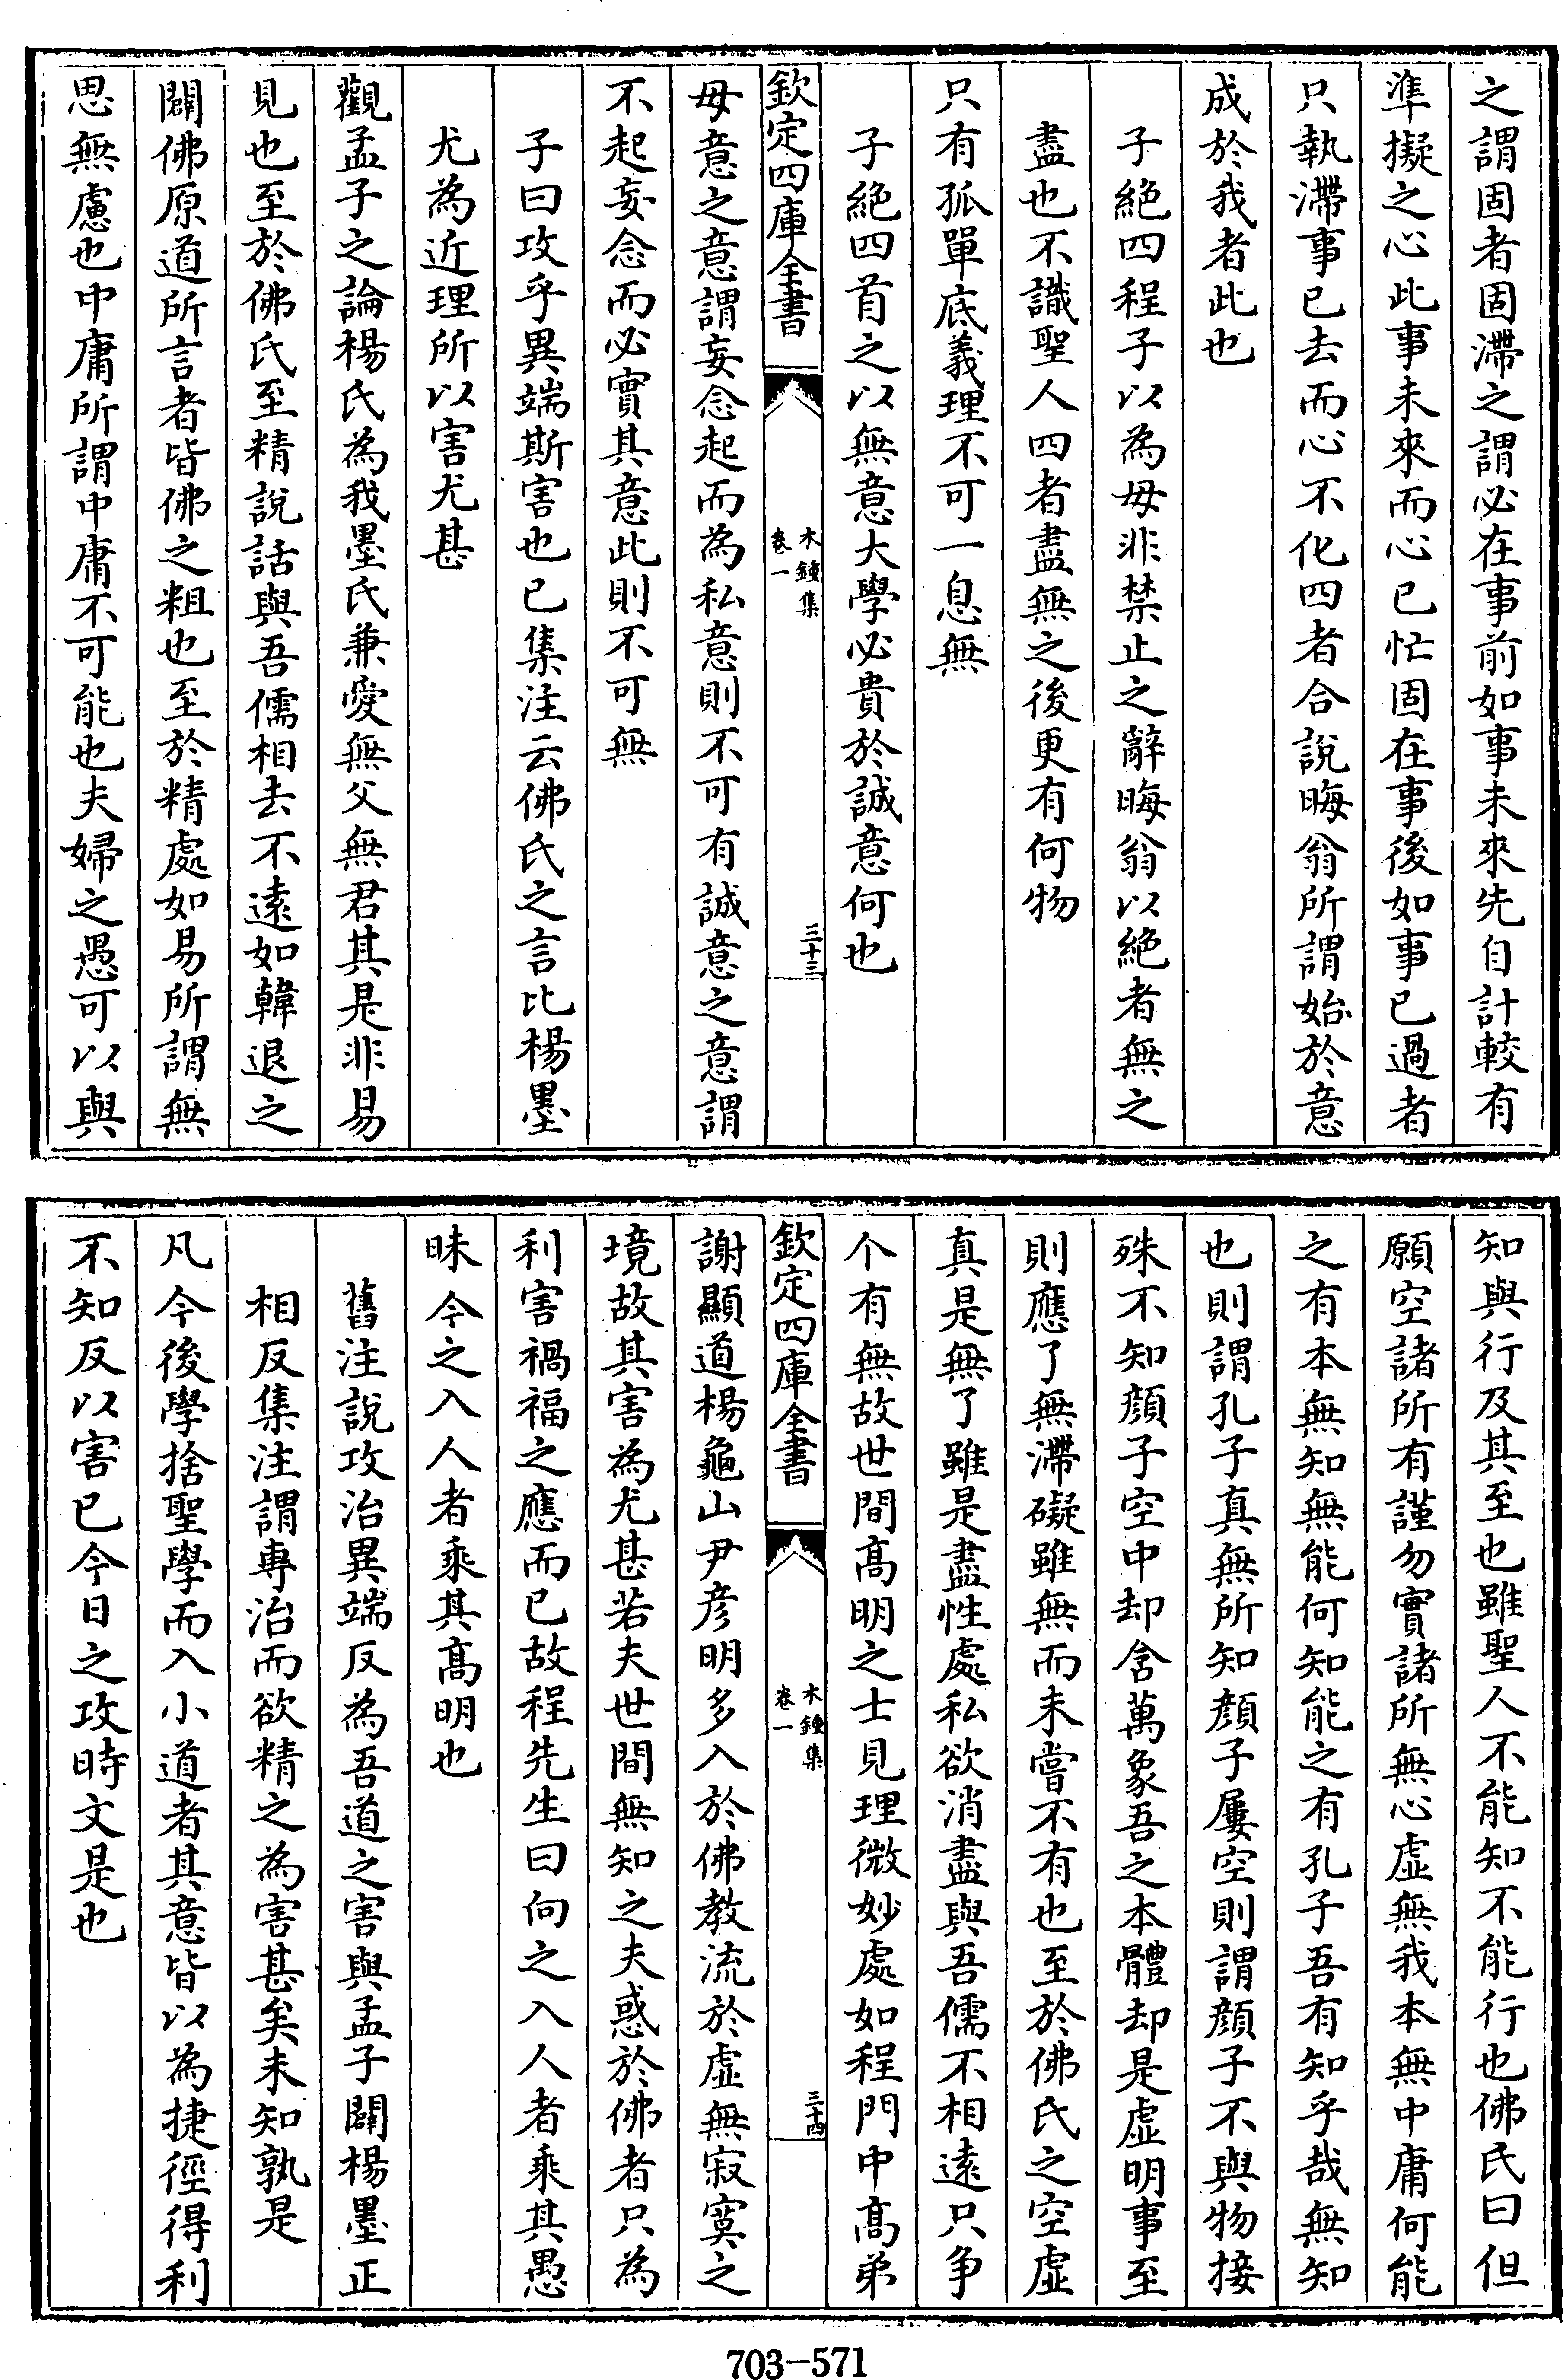 之謂固者固滯之謂必在事前如事未來先自計較有
準擬之心此事未來而心已忙固在事後如事已過者
只執滯事已去而心不化四者合說晦翁所謂始於意
成於我者此也
子絶四程子以為毋非禁止之辭晦翁以絶者無之
盡也不識聖人四者盡無之後更有何物
只有孤單底義理不可一息無
子絶四首之以無意大學必貴於誠意何也
欽定四庫全書
木鍾集
卷一
三十三
毋意之意謂妄念起而為私意則不可有誠意之意謂
不起妄念而必實其意此則不可無
子曰攻乎異端斯害也已集注云佛氏之言比楊墨
尤為近理所以害尤甚
觀孟子之論楊氏為我墨氏兼愛無父無君其是非易
見也至於佛氏至精說話與吾儒相去不遠如韓退之
闢佛原道所言者皆佛之粗也至於精處如易所謂無
思無慮也中庸所謂中庸不可能也夫婦之愚可以與
知與行及其至也雖聖人不能知不能行也佛氏曰但
願空諸所有謹勿實諸所無心虛無我本無中庸何能
之有本無知無能何知能之有孔子吾有知乎哉無知
也則謂孔子真無所知顔子屢空則謂顔子不與物接
殊不知顔子空中却含萬象吾之本體却是虛明事至
則應了無滯礙雖無而未嘗不有也至於佛氏之空虛
真是無了雖是盡性處私欲消盡與吾儒不相遠只争
个有無故世間髙明之士見理微妙處如程門中髙弟
欽定四庫全書
木鍾集
卷一
三十四
謝顯道楊龜山尹彦明多入於佛教流於虛無寂寞之
境故其害為尤甚若夫世間無知之夫惑於佛者只為
利害禍福之應而已故程先生曰向之入人者乘其愚
昧今之入人者乘其髙明也
舊注說攻治異端反為吾道之害與孟子闢楊墨正
相反集注謂専治而欲精之為害甚矣未知孰是
凡今後學捨聖學而入小道者其意皆以為捷徑得利
不知反以害已今日之攻時文是也
703-571